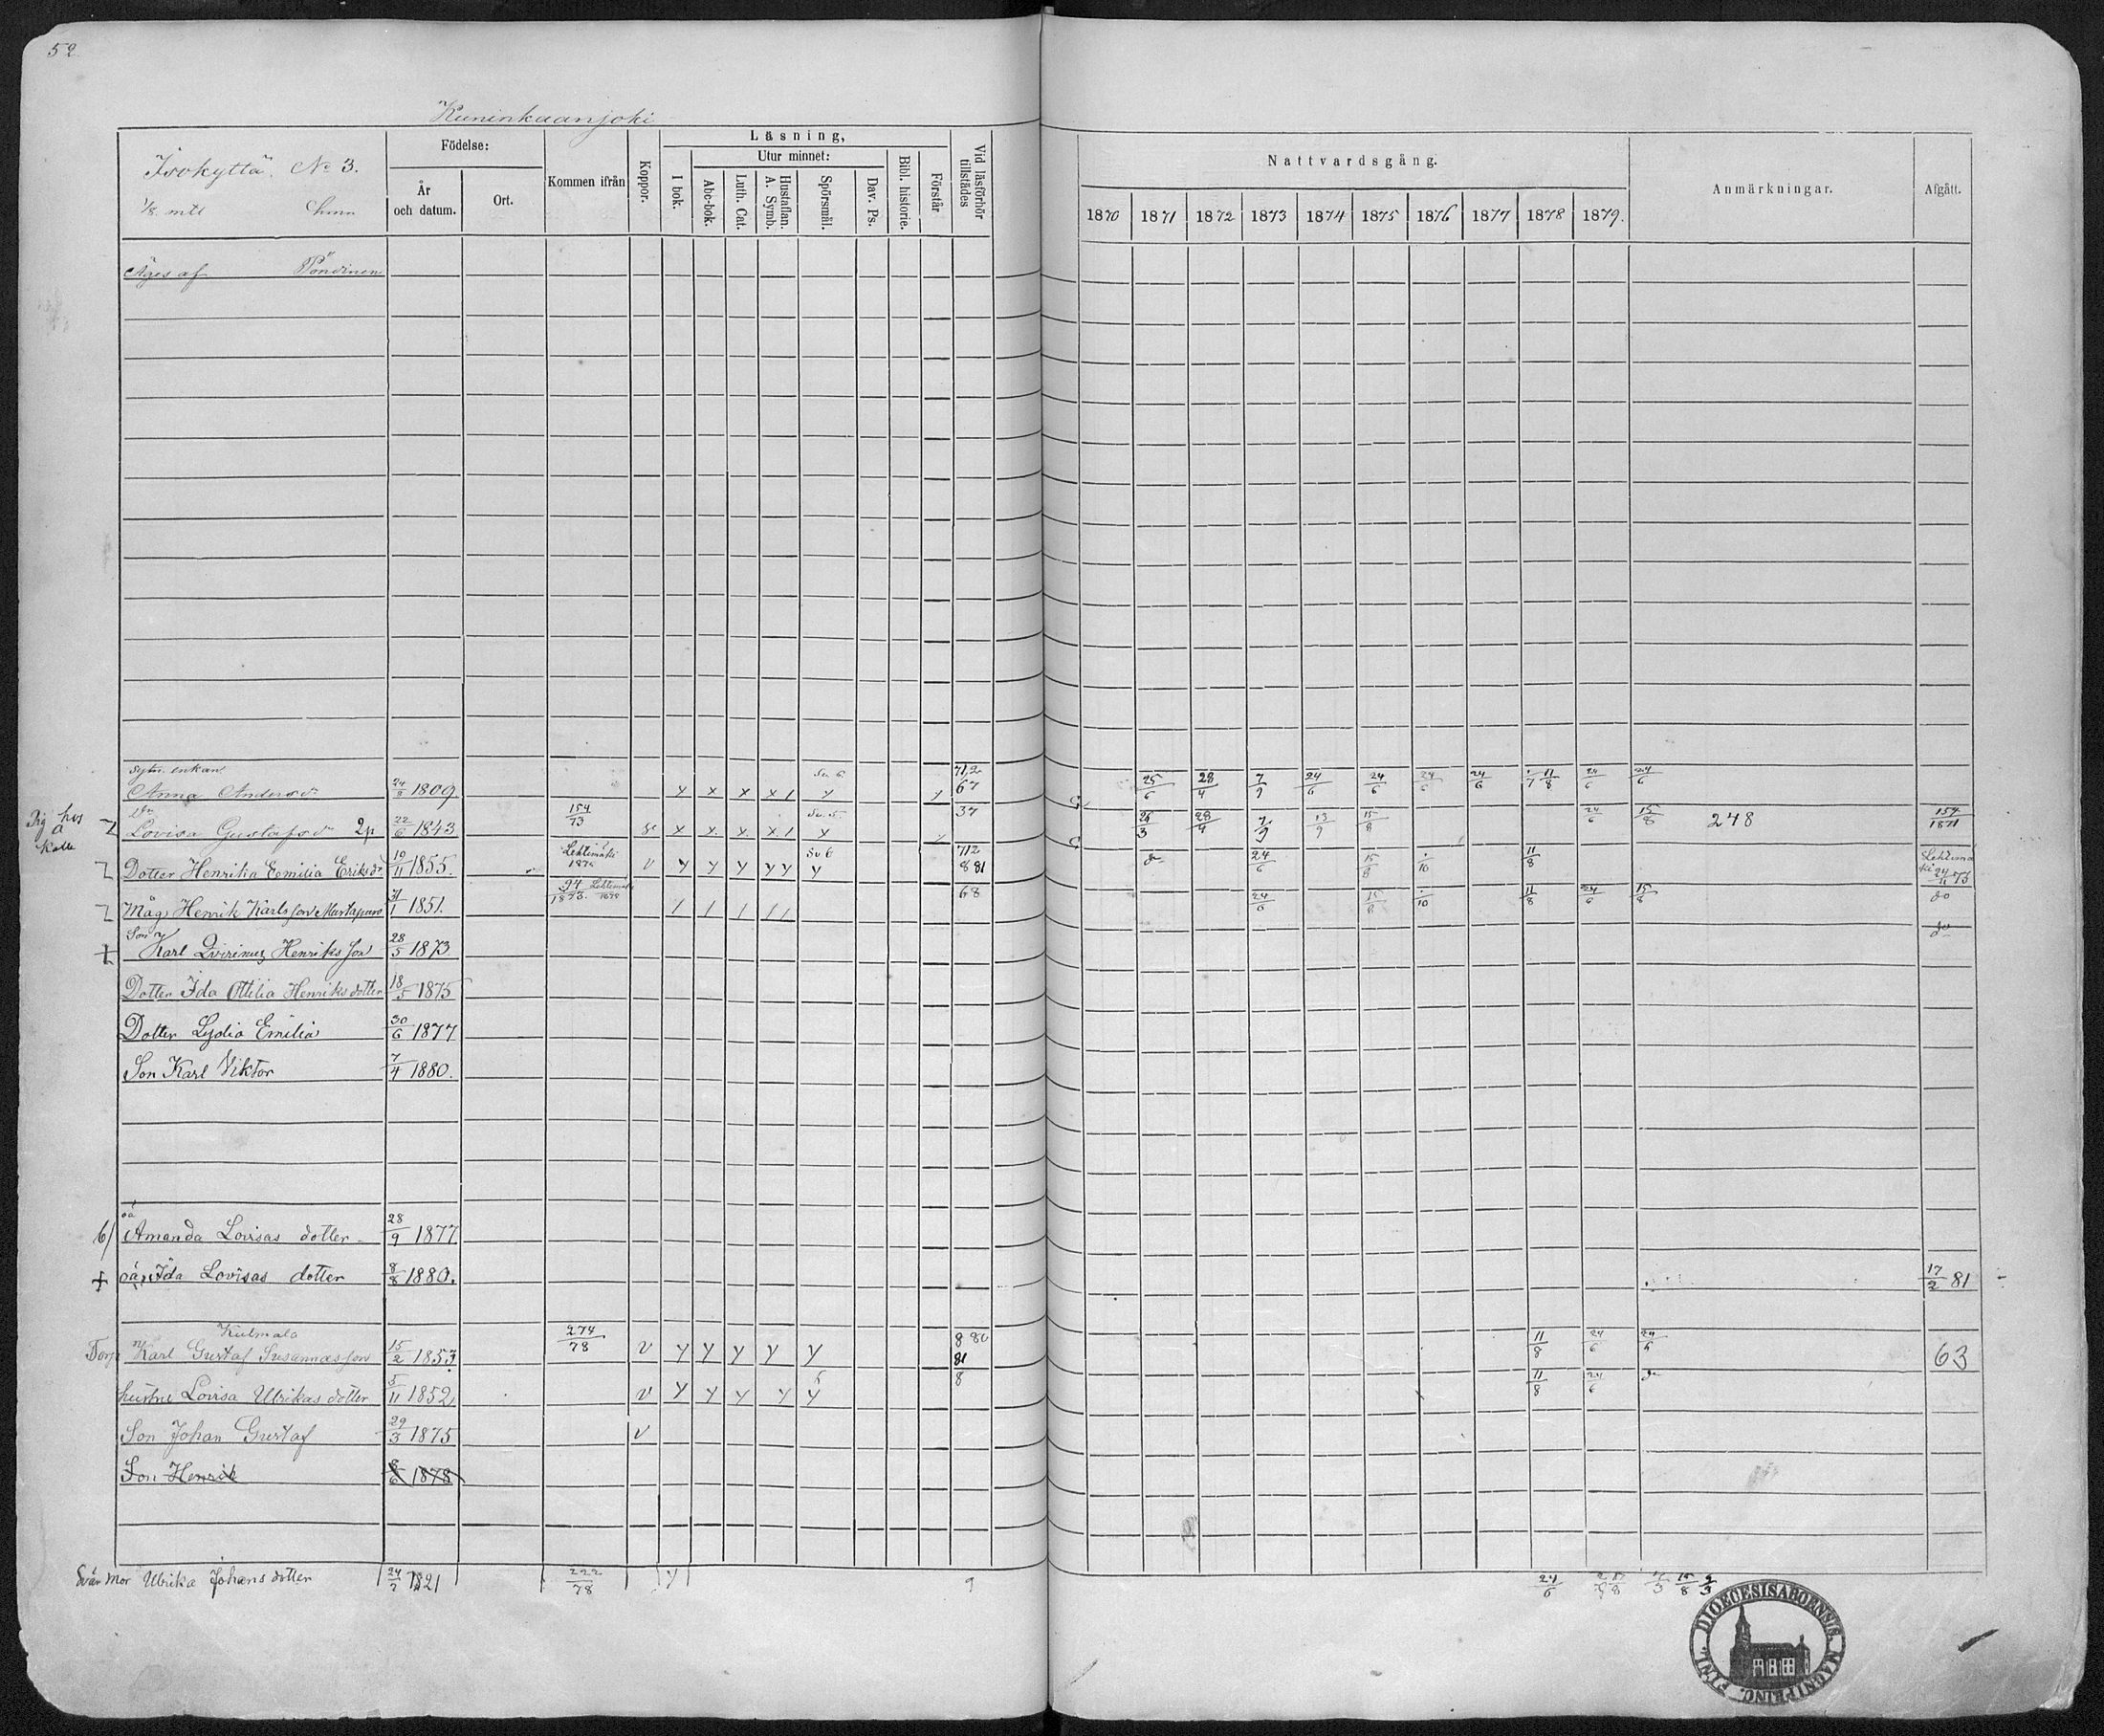 52
Kuninkaanjoki
Isokyttä. No 3.
1/8 mtl
Födelse:
År och datum.
Ort.
Kommen ifrån
Koppor.
Läsning,
I bok.
Utur minnet:
Abc-bok.
Luth. Cat.
Hustaflan. A. Symb.
Spörsmål.
Dav. Ps.
Bibl. historie.
Förstår
Vid läsförhör tillstädes
Nattvardsgång.
1870 1871 1872 1873 1874 1875 1876 1877 1878 1879.
Anmärkningar.
Afgått.
Äges af Pöndinen
sytn. enkan
Anna Andersd:r 24/9 1809 y x x x 1 y y 71,2 67 25/6 28/4 7/9 24/6 24/6 24/6 24/6 11/8 24/6 24/6
Pig hos
Kalle
Lovisa Gustafsd:r 2p 22/6 1843 154/73 x x x x 1 y 37 28/4 7/9 13/9 15/8 24/6 15/8 248 159/1871
Dotter Henrika Eemilia Eriksd:r 19/11 1855. Lehtimäki 1875 v y y y y y Sv 6 y 712 8 81 do 24/6 15/8 /10 11/8 Lehtimäki 24/11 73
Måg Henrik Karlsson Martaspuro 31/1 1851. 94/1873. Lehtimäki / / / / / 68 24/6 15/8 /10 11/8 24/6 15/8 do
Son
Karl Qvirinus Henriksson 28/5 1873 do
Dotter Ida Ottilia Henriksdotter 18/5 1875
Dotter Lydia Emilia 30/6 1877
Son Karl Viktor 7/4 1880.
oä
6/ Amanda Lovisas dotter 28/9 1877
+ oä. Ida Lovisas dotter 8/8 1880. 17/2 81
Kulmala
Torp Karl Gustaf Susannasson 15/2 1853 274/78 v y y y y y 8 80 81 11/8 24/6 24/6 63
hustru Lovisa Ulrikas dotter 5/11 1852 v y y y y 5 y 8 11/8 24/6 do
Son Johan Gustaf 29/3 1875 v
Son Henrik 8/6 1878
Svär mor Ulrika Johans dotter 24/7 1821 222/78 y 9 24/6 15/8 9/3
DIOECESIS ABOENSIS MAGNI PRINC. FINL.